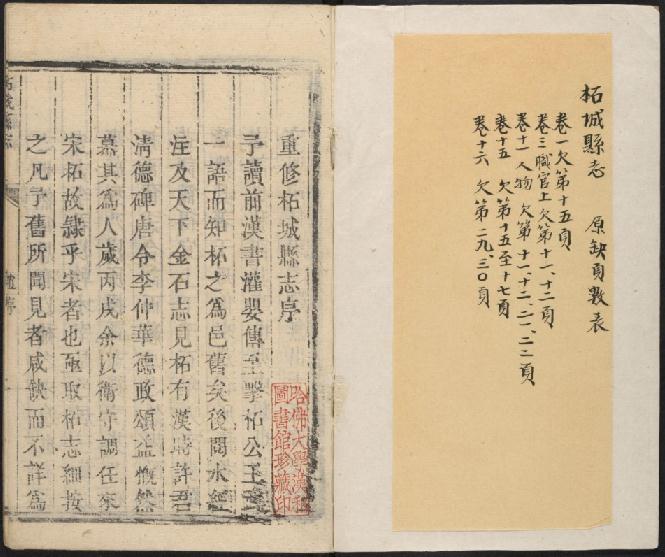 柘城縣志　原缺頁數表
卷一欠第十五頁
卷三職官上欠第十一、十二頁
卷十一人物欠第十一、十二、二一、二二頁
卷十五　欠第十五至十七頁
卷十六　欠第二九、三〇頁
重修柘城縣志序
予讀前漢書灌嬰傳至擊柘公王
一語而知柘之為邑舊矣後閱水經
注及天下金石志見柘有漢時許君
清德碑唐令李仲華德政頌益慨然
慕其為人歲丙戌余以衛守調任來
宋柘故隷乎宋者也亟取柘志細按
之凡予舊所聞見者咸缺而不詳為
柘城縣志
哈佛大學漢和
圖書館珍藏印